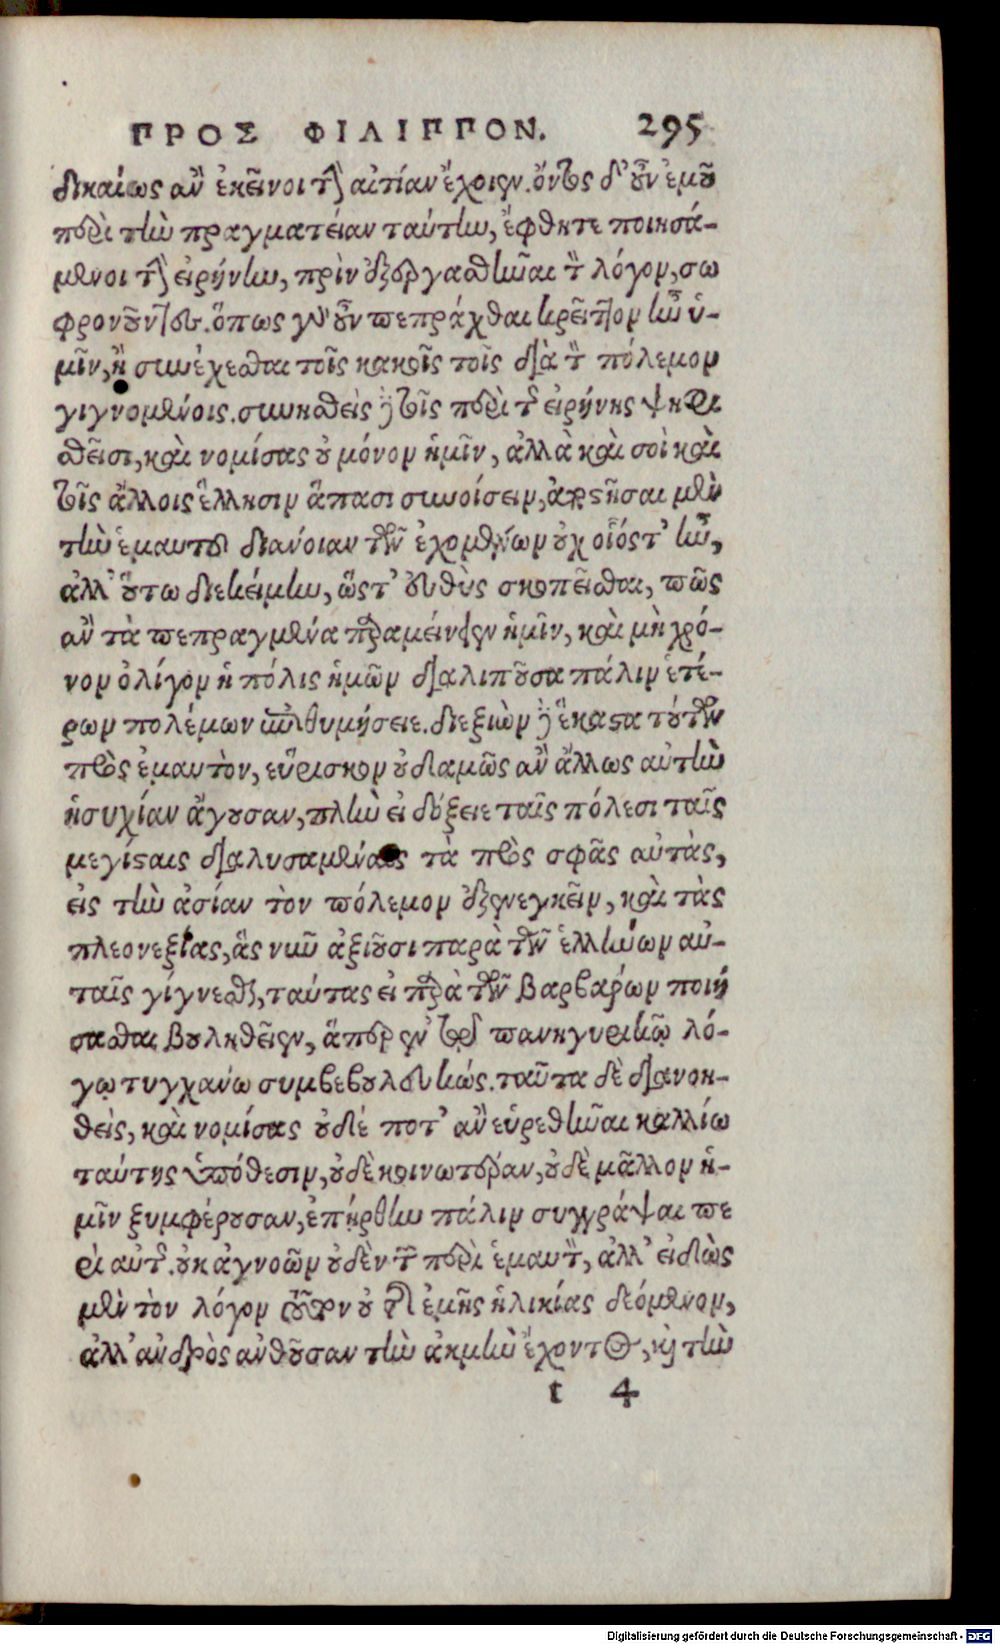 ΠΡΟΣ ΦΙΛΙΠΠΟΝ. 295
δικαίως ἂν ἐκεῖνοι τὴν αἰτίαν ἔχοιεν. ὄντος δ' οὖν ἐμοῦ
περὶ τὴν πραγματείαν ταύτην, ἔφθητε ποιησά-
μενοι τὴν εἰρήνην, πρὶν ἐξεργασθῆναι τὸν λόγον, σω
φρονοῦντες. ὅπως γὰρ οὖν πεπράχθαι κρεῖττον ἦν ὑ-
μῖν, ἢ συνέχεσθαι τοῖς κακοῖς τοῖς διὰ τὸν πόλεμον
γιγνομένοις. συνησθεὶς δὲ τοῖς περὶ τῆς εἰρήνης ψηφι
σθεῖσι, καὶ νομίσας οὐ μόνον ἡμῖν, ἀλλὰ καὶ σοὶ καὶ
τοῖς ἄλλοις ἕλλησιν ἅπασι συνοίσειν, ἀποστῆσαι μὲν
τὴν ἐμαυτοῦ διάνοιαν τῶν ἐχομένων οὐχ οἷός τ' ἦν,
ἀλλ' οὕτω διεκείμην, ὥστ' εὐθὺς σκοπεῖσθαι, πῶς
ἂν τὰ πεπραγμένα παραμείνειεν ἡμῖν, καὶ μὴ χρό-
νον ὀλίγον ἡ πόλις ἡμῶν διαλιποῦσα πάλιν ἑτέ-
ρων πολέμων ἐπιθυμήσειε. διεξιὼν δὲ ἕκαστα τούτων
πρὸς ἐμαυτὸν, εὕρισκον οὐδαμῶς ἂν ἄλλως αὐτὴν
ἡσυχίαν ἄγουσαν, πλὴν εἰ δόξειε ταῖς πόλεσι ταῖς
μεγίσταις διαλυσαμέναις τὰ πρὸς σφᾶς αὐτὰς,
εἰς τὴν ἀσίαν τὸν πόλεμον ἐξενεγκεῖν, καὶ τὰς
πλεονεξίας, ἃς νῦν ἀξιοῦσι παρὰ τῶν ἑλλήνων αὑ-
ταῖς γίγνεσθαι, ταύτας εἰ παρὰ τῶν βαρβάρων ποιή
σασθαι βουληθεῖεν, ἅπερ ἐν τῷ πανηγυρικῷ λό-
γῳ τυγχάνω συμβεβουλευκώς. ταῦτα δὲ διανοη-
θεὶς, καὶ νομίσας οὐδέ ποτ' ἂν εὑρεθῆναι καλλίω
ταύτης ὑπόθεσιν, οὐδὲ κοινωτέραν, οὐδὲ μᾶλλον ἡ-
μῖν ξυμφέρουσαν, ἐπήρθην πάλιν συγγράψαι πε
ρὶ αὐτῆς. οὐκ ἀγνοῶν οὐδὲν τῶν περὶ ἐμαυτὸν, ἀλλ' εἰδὼς
μὲν τὸν λόγον τοῦτον οὐ τῆς ἐμῆς ἡλικίας δεόμενον,
ἀλλ' ἀνδρὸς ἀνθοῦσαν τὴν ἀκμὴν ἔχοντος, καὶ τὴν
t 4
Digitalisierung gefördert durch die Deutsche Forschungsgemeinschaft - DFG